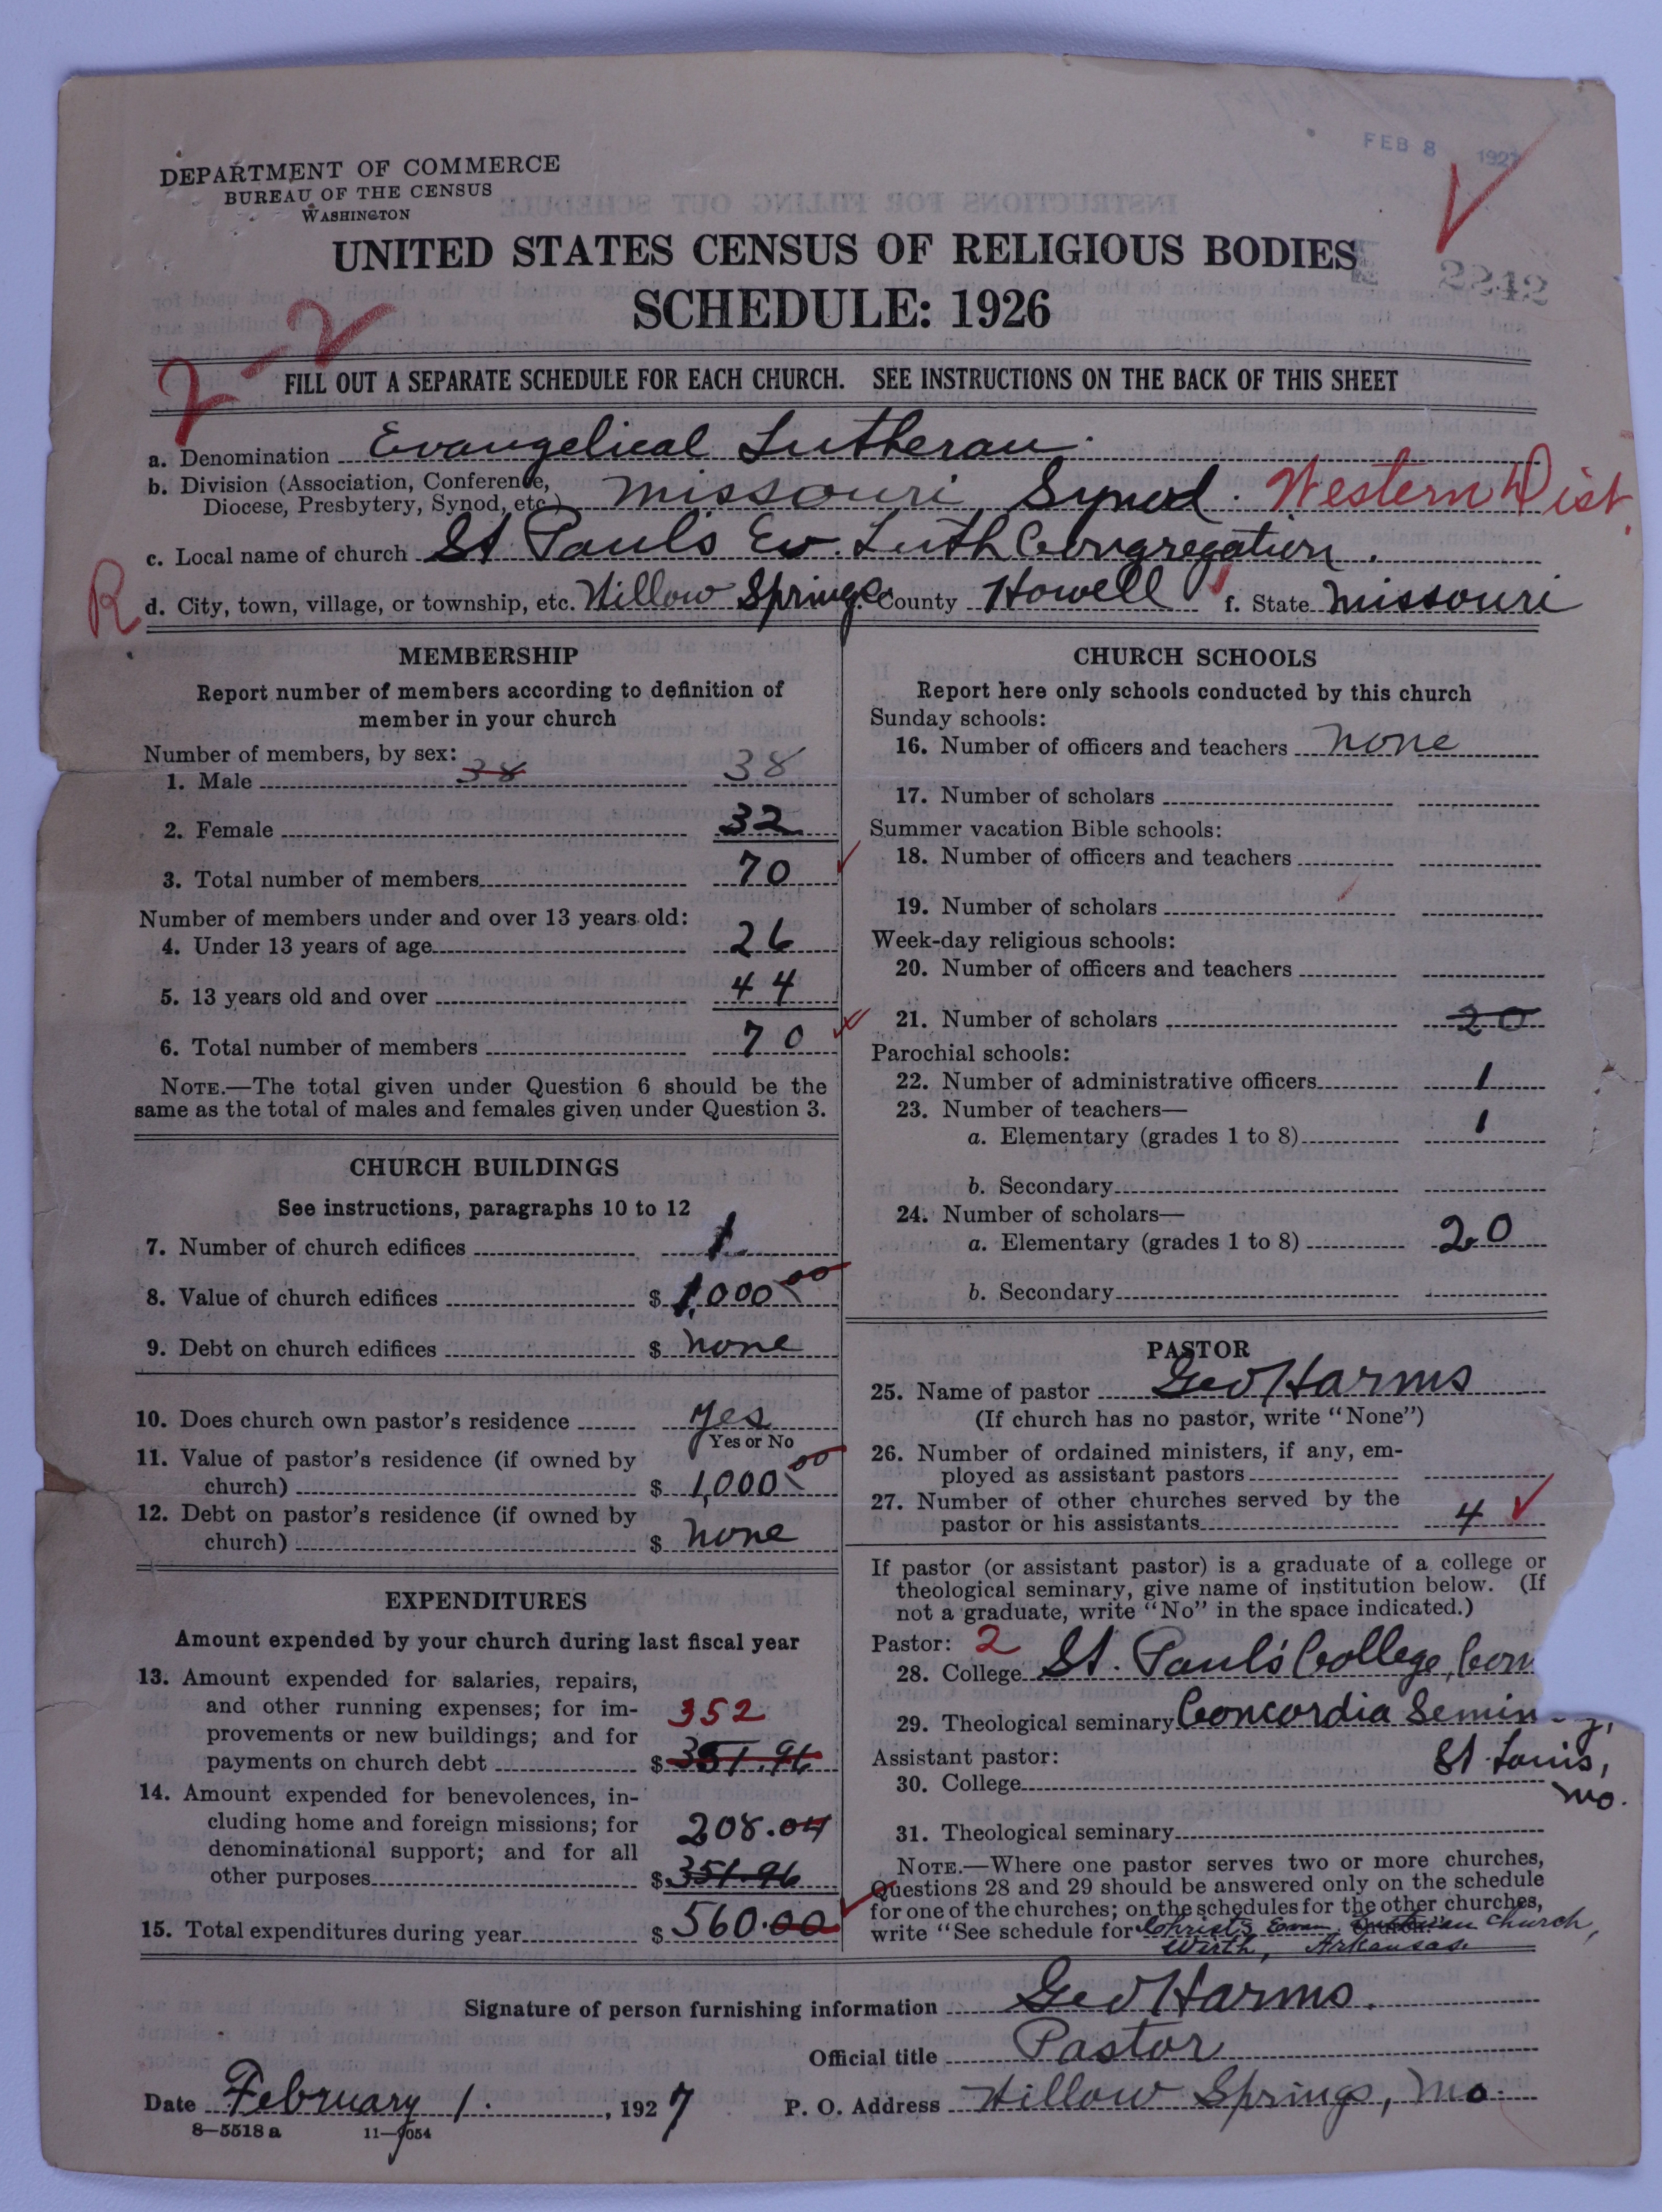 FEB 8 1927
DEPARTMENT OF COMMERCE
BUREAU OF THE CENSUS
WASHINGTON
UNITED STATES CENSUS OF RELIGIOUS BODIES
2242
SCHEDULE: 1926
2-2
FILL OUT A SEPARATE SCHEDULE FOR EACH CHURCH. SEE INSTRUCTIONS ON THE BACK OF THIS SHEET
a. Denomination Evangelical Lutheran.
b. Division (Association, Conference,
Diocese, Presbytery, Synod, etc.) Missouri Synod. Western Dist.
c. Local name of church St Pauls Ev. Luth Congregation.
R d. City, town, village, or township, etc. Willow Springs e. County Howell f. State Missouri
MEMBERSHIP
Report number of members according to definition of
member in your church
Number of members, by sex:
1. Male 38 38
2. Female 32
3. Total number of members 70
Number of members under and over 13 years old:
4. Under 13 years of age 26
5. 13 years old and over 44
6. Total number of members 70
NOTE.—The total given under Question 6 should be the
same as the total of males and females given under Question 3.
CHURCH BUILDINGS
See instructions, paragraphs 10 to 12
7. Number of church edifices 1
8. Value of church edifices $ 1,000 00
9. Debt on church edifices $ none
10. Does church own pastor's residence yes
Yes or No
11. Value of pastor's residence (if owned by
church) $ 1,000 00
12. Debt on pastor's residence (if owned by
church) $ none
EXPENDITURES
Amount expended by your church during last fiscal year
13. Amount expended for salaries, repairs,
and other running expenses; for im-
provements or new buildings; and for 352
payments on church debt $ 351.96
14. Amount expended for benevolences, in-
cluding home and foreign missions; for 208.04
denominational support; and for all
other purposes $ 351.96
15. Total expenditures during year $ 560.00
CHURCH SCHOOLS
Report here only schools conducted by this church
Sunday schools:
16. Number of officers and teachers none
17. Number of scholars
Summer vacation Bible schools:
18. Number of officers and teachers
19. Number of scholars
Week-day religious schools:
20. Number of officers and teachers
21. Number of scholars 20
Parochial schools:
22. Number of administrative officers 1
23. Number of teachers—
a. Elementary (grades 1 to 8) 1
b. Secondary
24. Number of scholars—
a. Elementary (grades 1 to 8) 20
b. Secondary
PASTOR
25. Name of pastor Geo Harms
(If church has no pastor, write "None")
26. Number of ordained ministers, if any, em-
ployed as assistant pastors
27. Number of other churches served by the
pastor or his assistants 4
If pastor (or assistant pastor) is a graduate of a college or
theological seminary, give name of institution below. (If
not a graduate, write "No" in the space indicated.)
Pastor: 2
28. College St. Paul's College, Con
29. Theological seminary Concordia Semin y,
Assistant pastor: St. Louis,
30. College Mo.
31. Theological seminary
NOTE.—Where one pastor serves two or more churches,
Questions 28 and 29 should be answered only on the schedule
for one of the churches; on the schedules for the other churches,
write "See schedule for Christ's Evan. Lutheran Church,
Wirth, Arkansas.
Signature of person furnishing information Geo Harms.
Official title Pastor
Date February 1., 1927 P. O. Address Willow Springs, Mo.
8—5518 a 11—9054